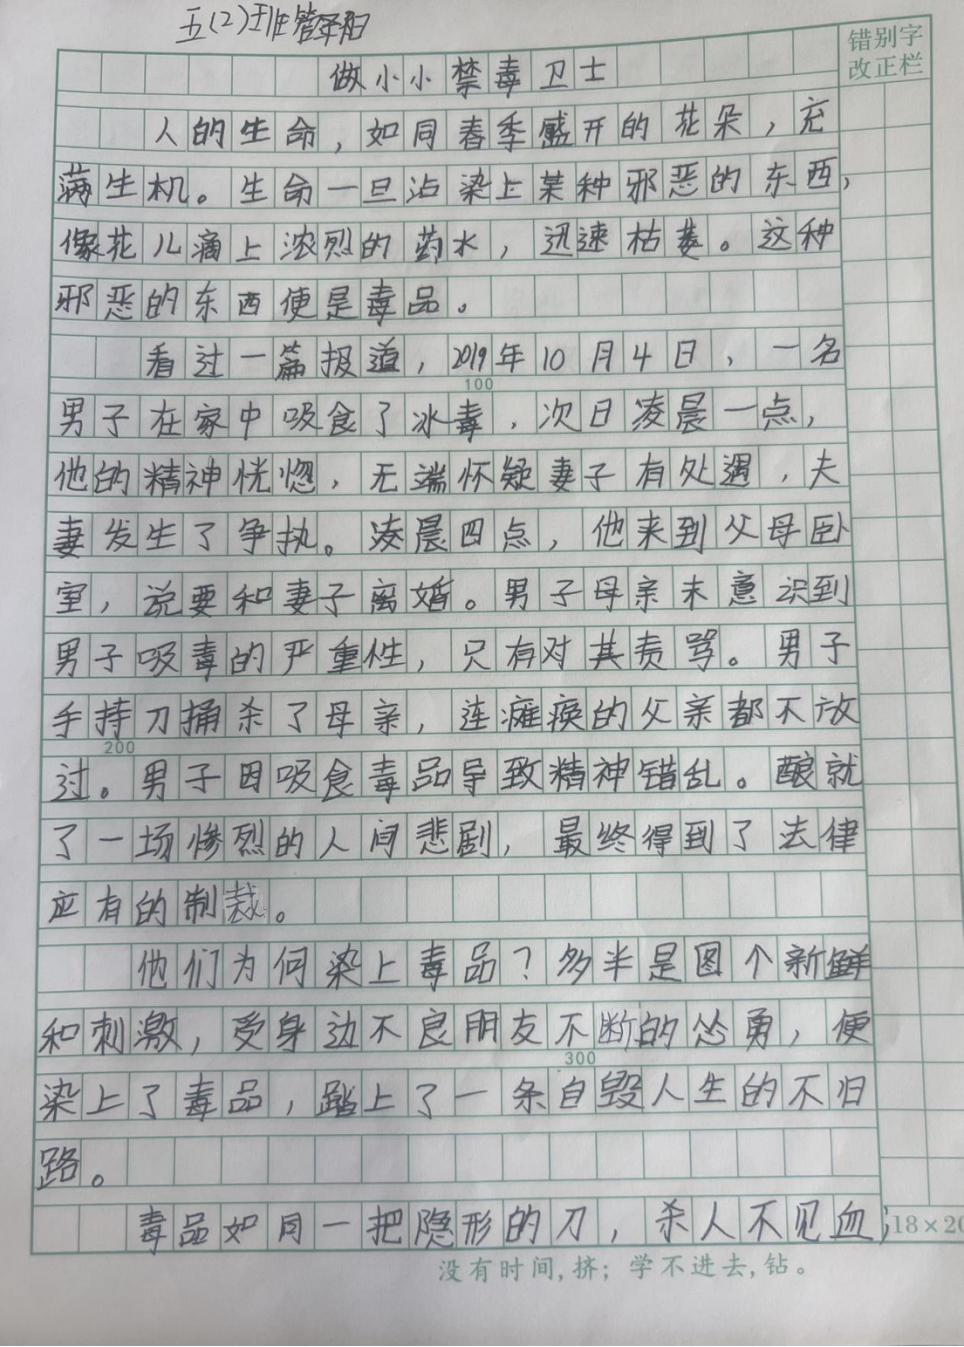 五(2)班管泽阳
错别字
改正栏
做小小禁毒卫士
人的生命，如同春季盛开的花朵，充
满生机。生命一旦沾染上某种邪恶的东西，
像花儿滴上浓烈的药水，迅速枯萎。这种
邪恶的东西便是毒品。
看过一篇报道，2019年10月4日，一名
100
男子在家中吸食了冰毒，次日凌晨一点，
他的精神恍惚，无端怀疑妻子有处遇，夫
妻发生了争执。凌晨四点，他来到父母卧
室，说要和妻子离婚。男子母亲未意识到
男子吸毒的严重性，只有对其责骂。男子
手持刀捅杀了母亲，连瘫痪的父亲都不放
200
过。男子因吸食毒品导致精神错乱。酿就
了一场惨烈的人间悲剧，最终得到了法律
应有的制裁。
他们为何染上毒品？多半是图个新鲜
和刺激，受身边不良朋友不断的怂勇，便
300
染上了毒品，踏上了一条自毁人生的不归
路。
毒品如同一把隐形的刀，杀人不见血；
18×20
没有时间,挤；学不进去,钻。